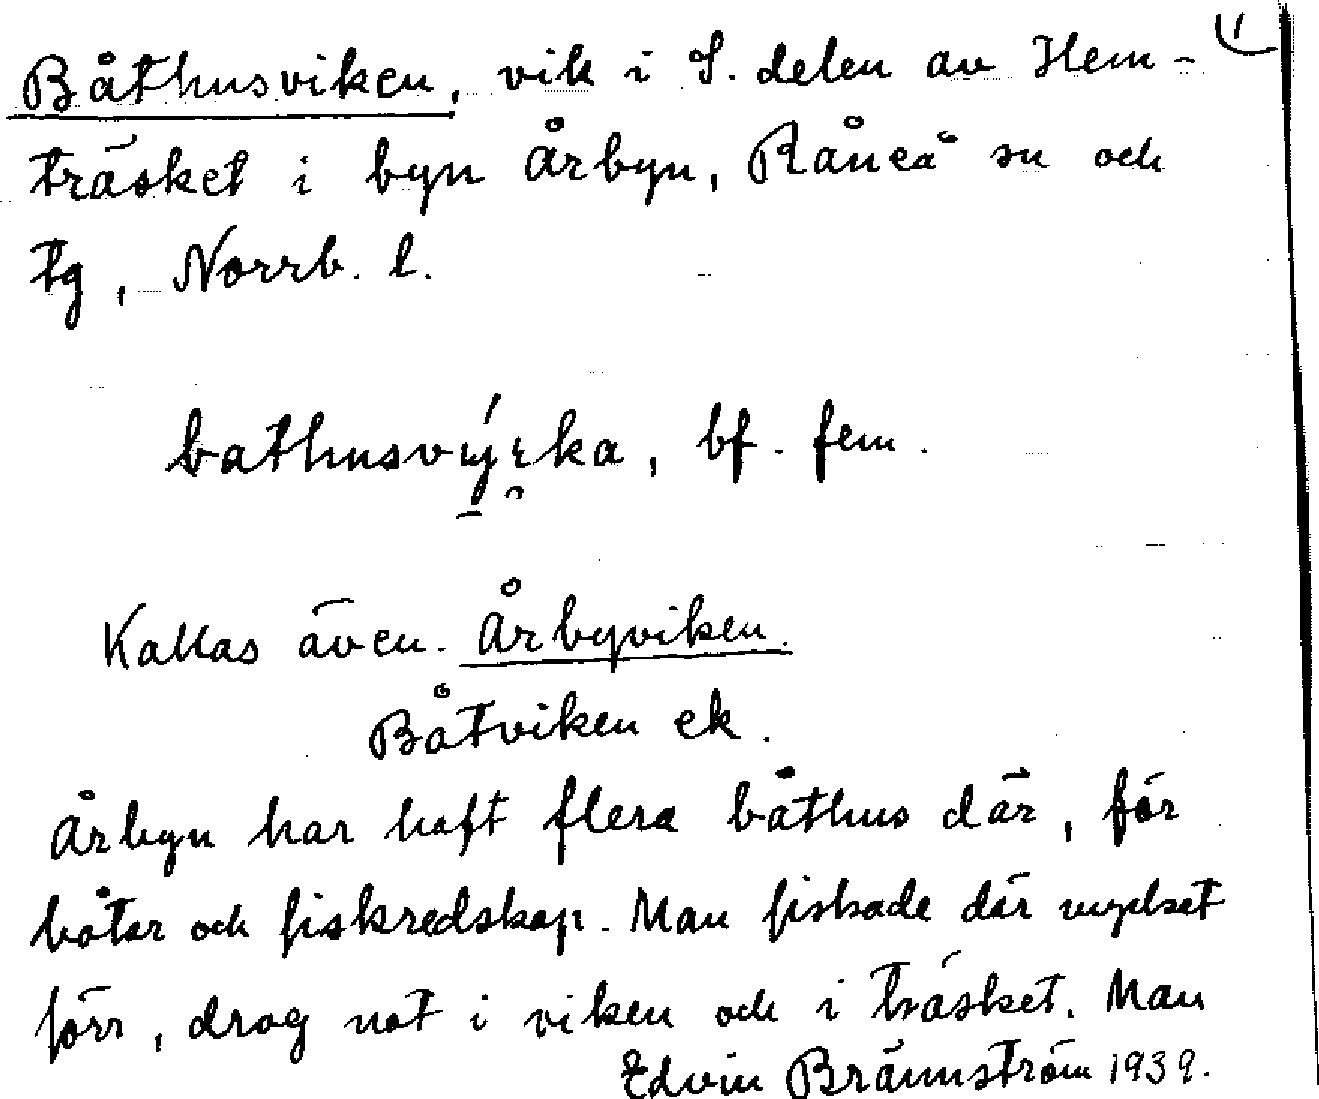 1
Båthusviken, vik i S. delen av Hem-
träsket i byn Årbyn, Råneå sn och
tg, Norrb. l.
bathusvyrka, bf. fem.
Kallas även. Årbyviken.
Båtviken ek.
Årbyn har haft flera båthus där, för
båtar och fiskredskap. Man fiskade där mycket
förr, drog not i viken och i träsket. Man
Edvin Brännström 1939.